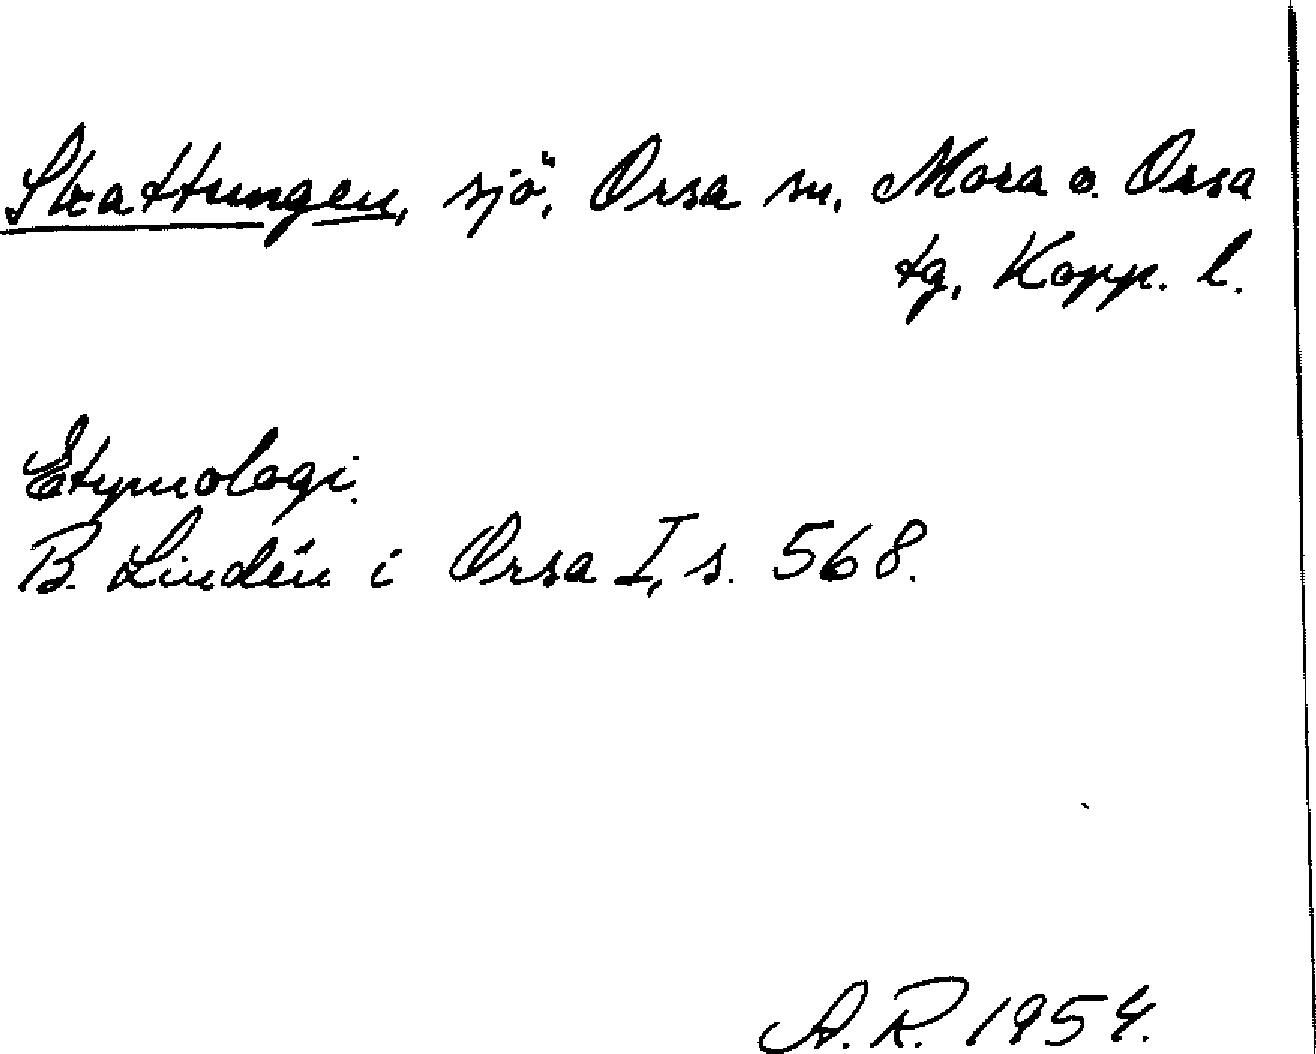 Skattungen, sjö, Orsa sn, Mora o. Orsa
tg, Kopp. l.
Etymologi.
B. Lindén i Orsa I, s. 568.
A. R. 1954.